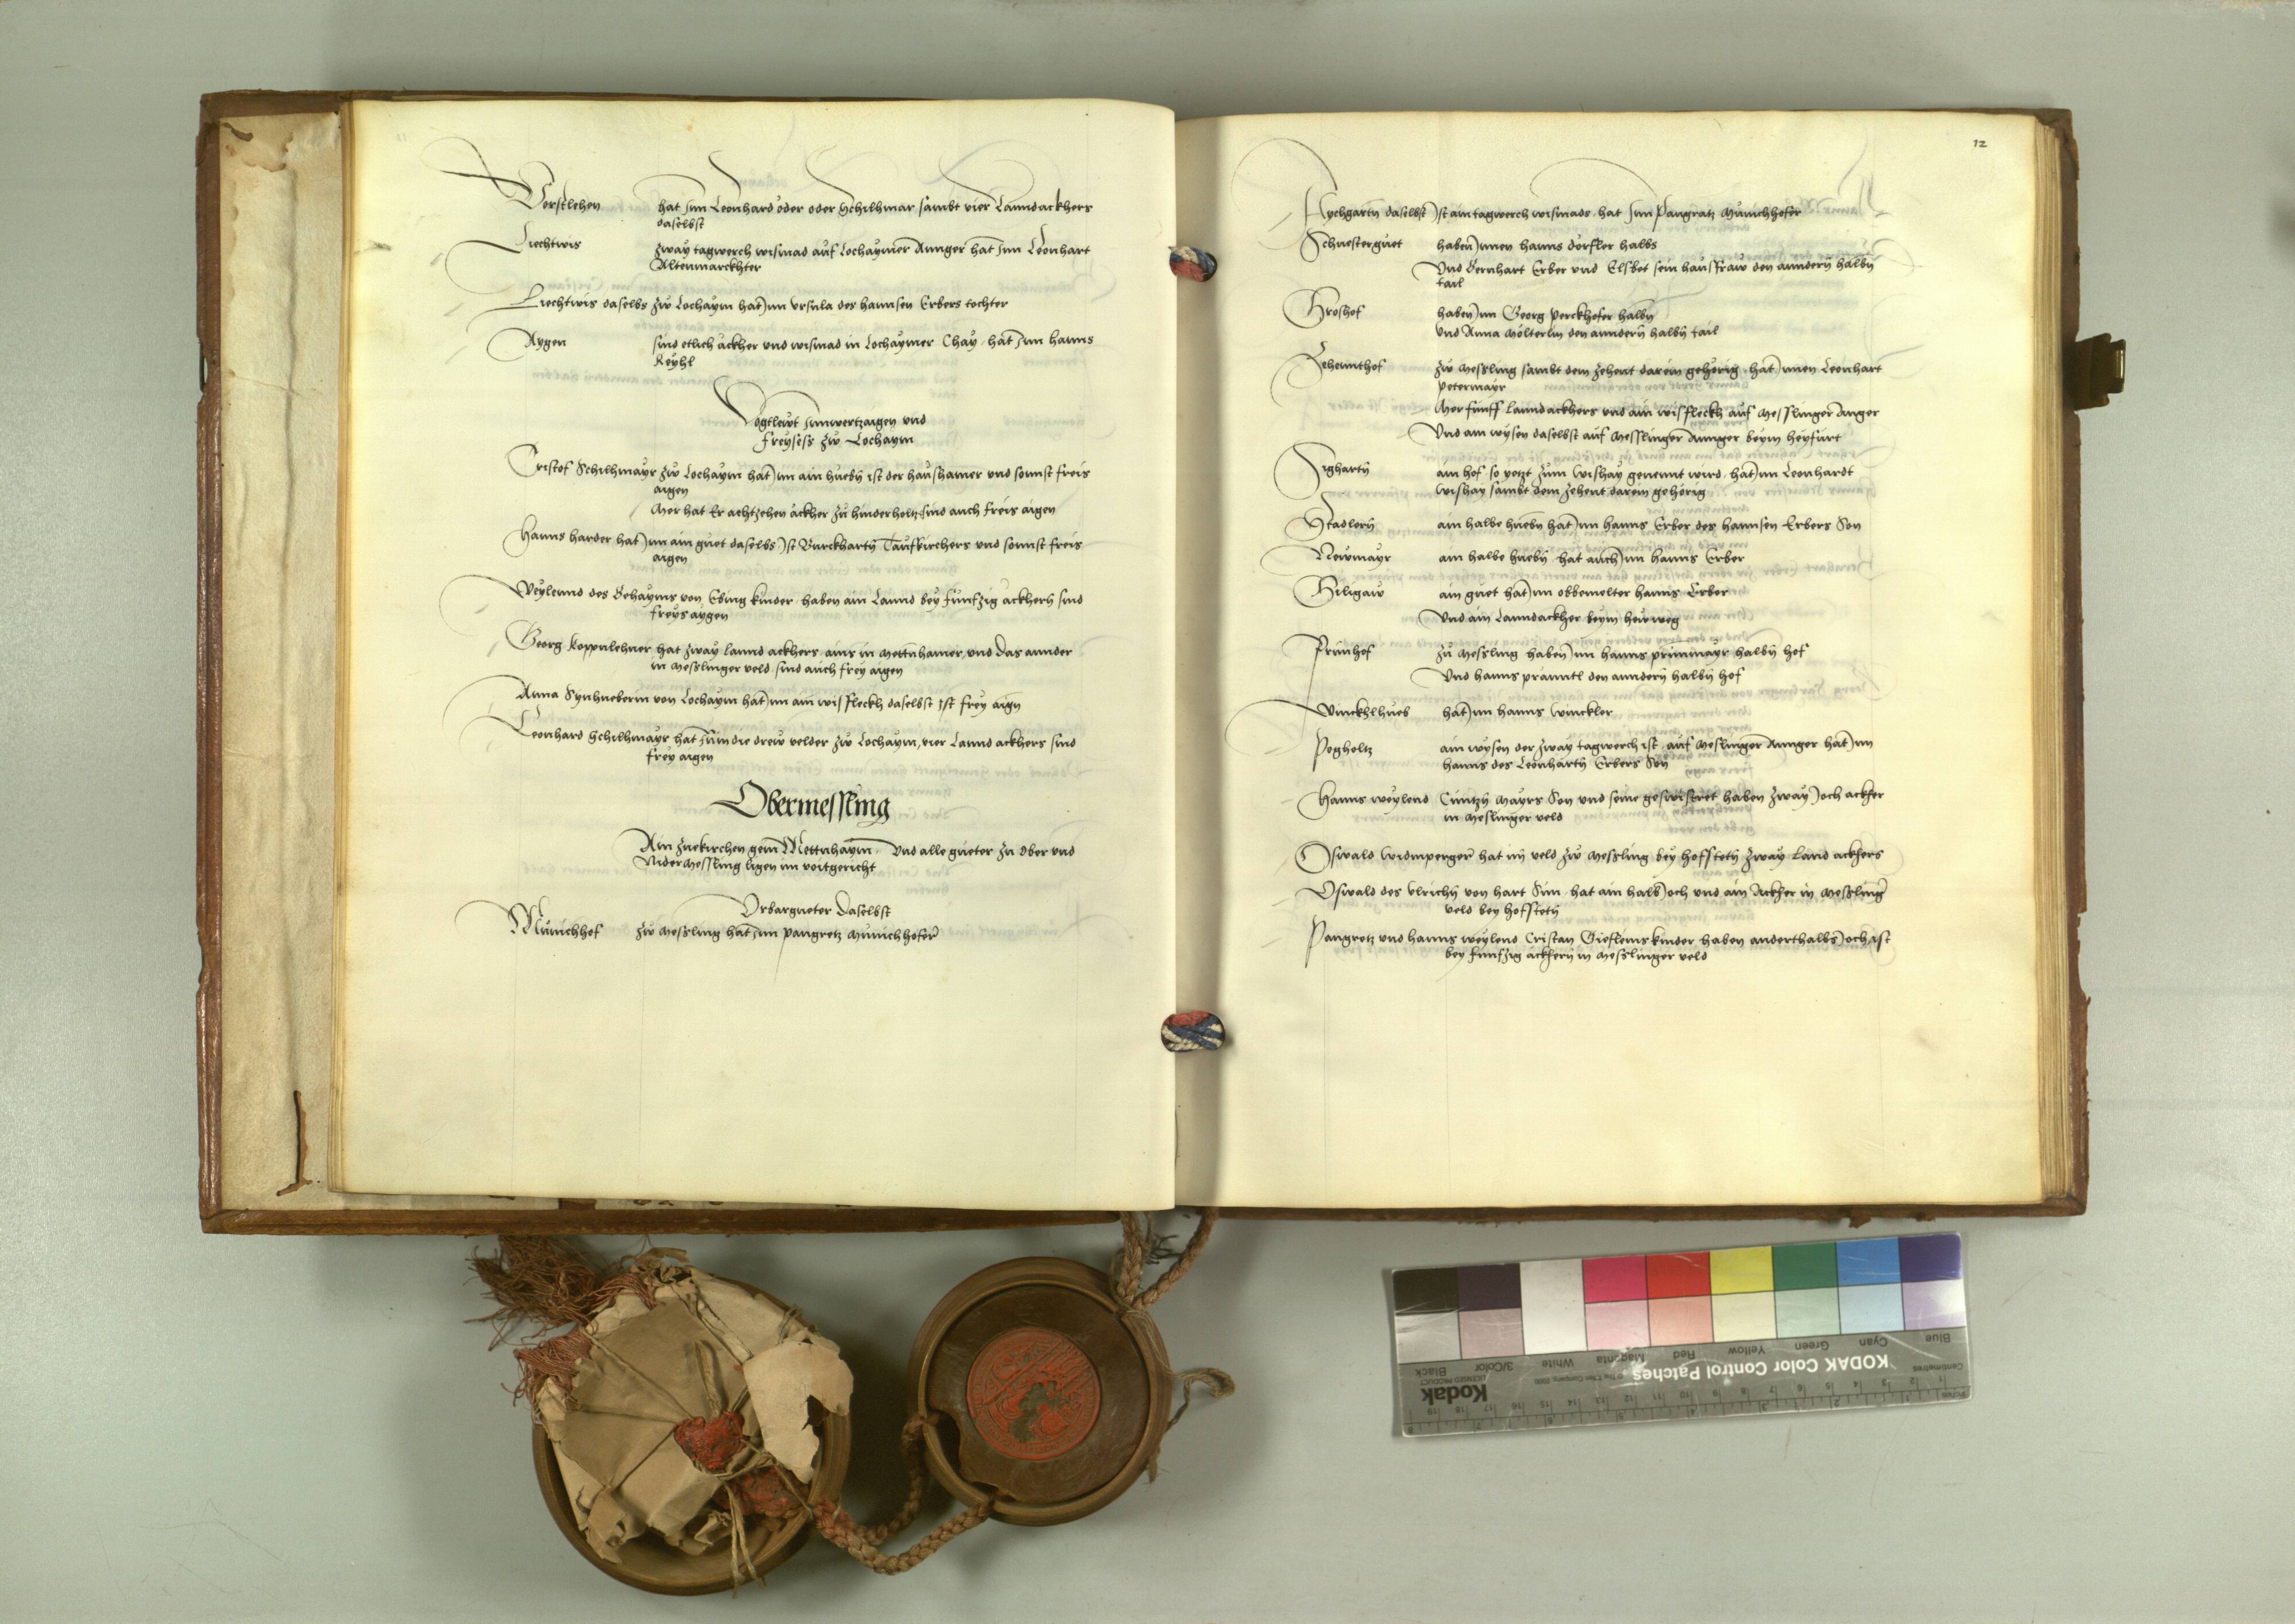 Verstlehen hat Jnn Leonhard oder oder Schilhmar sambt vier Lanndackhers
daselbst
Liechtwis zway tagwerch wismad auf Lochaymer Annger hat Jnn Leonhart
Altenmarckhter
Liechtwis daselbs zw Lochaym hat Jnn Ursula des hannsen Erbers tochter
Aygen sind etlich äckher und wismad in Lochaymer Chay hat Jnn hanns
Keyhl
Vogtlewt Jnnwertzaigen und
freysess zw Lochaym
Cristof Schilhmayr zw Lochaym hat Jnn ain hueby ist der haushamer und sonnst freis
aigen
Mer hat Er achtzehen äckher zu hinderholtz sind auch freis aigen
Hanns harder hat Jnn ain guet daselbs Jst Burckharty Taufkirchers und sonnst freis
aigen
Weylennd des Behayms von Ebing kinder haben ain Lannd bey funfzig äckhern sind
freys aygen
Georg koppnlehner hat zway lannd ackhers ains in Mettnhamer und das annder
in Messlinger veld sind auch frey aigen
Anna Synhueberin von Lochaym hat Jnn ain wisfleckh daselbst Jst frey aign
Leonhard Schilhmayr hat Jnn in die drew velder zw Lochaym, vier Lannd ackhers sind
frey aigen
Obermessling
Ain zuekirchen gein Mettnhaym Und alle güeter zu Ober und
Nider Messling ligen im voitgericht
Urbargueter daselbst
Münichhof zw Messling hat Jnn pangretz Münichhofer
12
Aychgarty daselbst Jst ain tagwerch wismads hat Jnn Pangratz Münichhofer
Schuesterguet haben Jnnen hanns dorfler halbs
Und Bernhart Erber und Elsbet sein hausfraw den anndern halby
tail
Groshof haben Jnn Georg perckhofer halby
und Anna Molterlin den anndern halby tail
Zehennthof zw Messling sambt dem zehent darein gehörig hat Jnnen Leonhart
petermayr
Mer funff lanndackhers und ain wisfleckh auf Messlinger Anger
Und ain wysen daselbst auf Messlinger Annger beym heyfurt
Sigharty ain hof so yetzt zum Wishay genennt wird hat Jnn Leonhardt
Wishay sambt dem zehent darein gehörig
Stadlery ain halbe hueby hat Jnn hanns Erber des hannsen Erbers Son
Newmayr ain halbe hueby hat auch Jnn hanns Erber
Hiligaw ain guet hat Jnn obbemelter hanns Erber
Und ain Lanndackher beym heirweg
Prünhof zu Messling haben Jnn hanns prünmayr halby hof
Und hanns präuntl den anndern halby hof
Winckhlhueb hat Jnn hanns Winckler
Pogholtz ain wysen der zway tagwerch ist auf Messlinger Annger hat Jnn
hanns des Leonharty Erbers Son
Hanns weylend Cuntzn Mayrs Son und seine geswistret haben zway Joch acker
in Messlinger veld
Oswald Widmperger hat im veld zw Messling bey hofstety zway Land ackhers
Oswald des Ulrichy von hart Sun hat ain halb Joch und ain Ackher in Messlinger
veld bey hofstety
Pangretz und hanns weylend Cristan kinder haben anderthalb Joch ist
bey funfzig äckhern in Messlinger veld
KODAK Color Control Patches
Kodak
LICENSED PRODUCT
Black
3/Color
White
Magenta
Red
Yellow
Green
Cyan
Blue
Centimetres
Inches